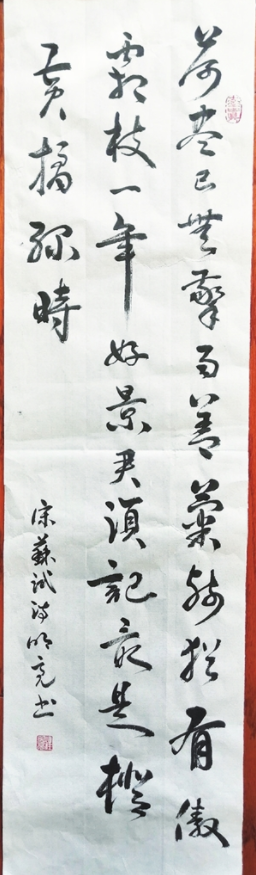 荷盡已無擎雨蓋菊殘猶有傲
霜枝一年好景君須記最是橙
黃橘綠時
宋蘇軾詩明亮書